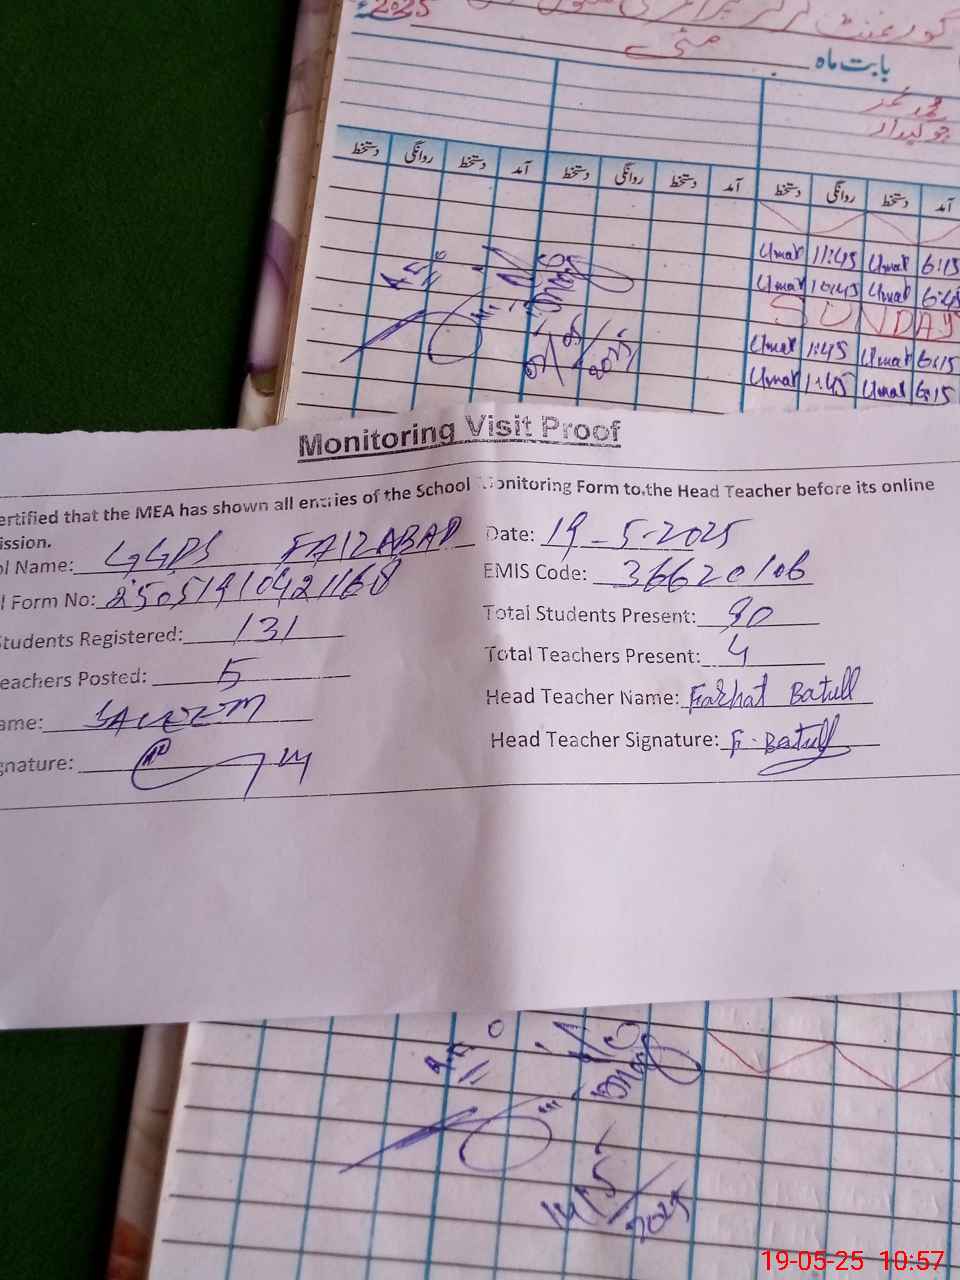 2025
گورنمنٹ گرلز پرائمری سکول
بابت ماہ مئی
محمد عمر
چوکیدار
آمد دستخط روانگی دستخط آمد دستخط روانگی دستخط آمد دستخط روانگی دستخط
Umar 11:45 Umar 6:15
Umar 10:45 Umar 6:45
SUNDAY
Umar 1:45 Umar 6:15
Umar 1:45 Umar 6:15
2025
Monitoring Visit Proof
ertified that the MEA has shown all entries of the School Monitoring Form to the Head Teacher before its online
ission.
ol Name: GGPS FAIZABAD Date: 19-5-2025
l Form No: EMIS Code: 36620106
Students Registered: 131 Total Students Present: 90
eachers Posted: 5 Total Teachers Present: 4
ame: SALEEM Head Teacher Name: Farhat Batull
gnature: Head Teacher Signature: F. Batull
14/5/2025
19-05-25 10:57